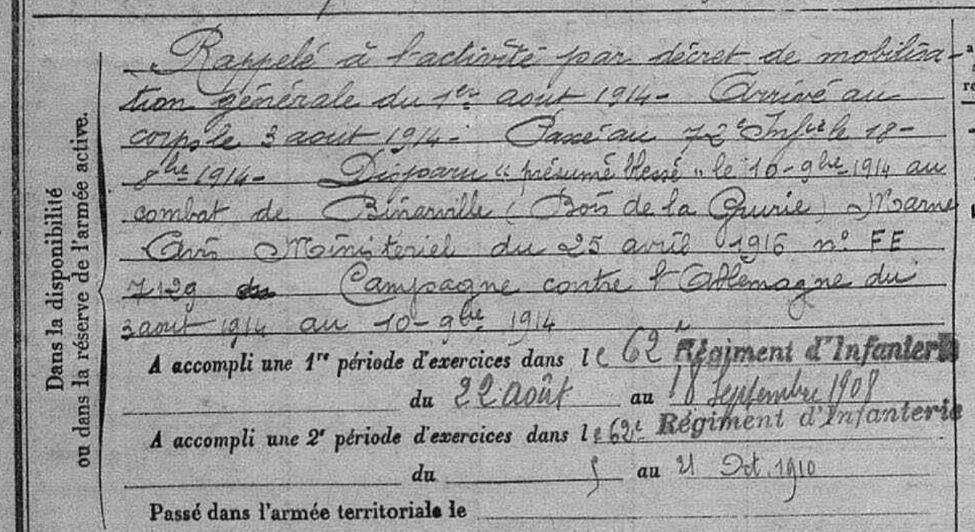 Rappelé à l'activité par décret de mobilisa-
tion générale du 1er aout 1914- Arrivé au
corps le 3 aout 1914- Passé au 72e Infie le 18-
8bre 1914- Disparu "présumé blessé" le 10-9bre 1914 au
combat de Binarville (Bois de la Grurie) Marne
Avis Ministeriel du 25 avril 1916 n° FE
7129 Campagne contre l'Allemagne du
3 aout 1914 au 10-9bre 1914
Dans la disponibilité
ou dans la réserve de l'armée active.
A accompli une 1re période d'exercices dans le 62e Régiment d'Infanterie
du 22 août au 18 Septembre 1908
A accompli une 2e période d'exercices dans le 62e Régiment d'Infanterie
du 5 au 21 Oct. 1910
Passé dans l'armée territoriale le